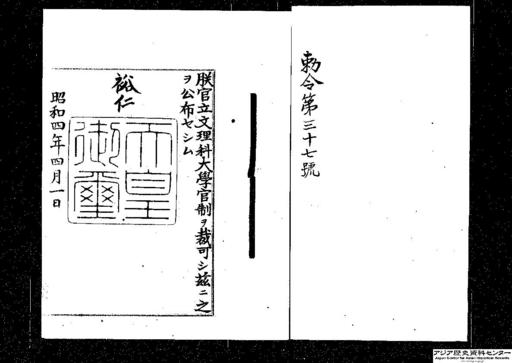 勅令第三十七號
朕官立文理科大學官制ヲ裁可シ茲ニ之
ヲ公布セシム
裕仁
天皇御璽
昭和四年四月一日
アジア歴史資料センター
Japan Center for Asian Historical Records